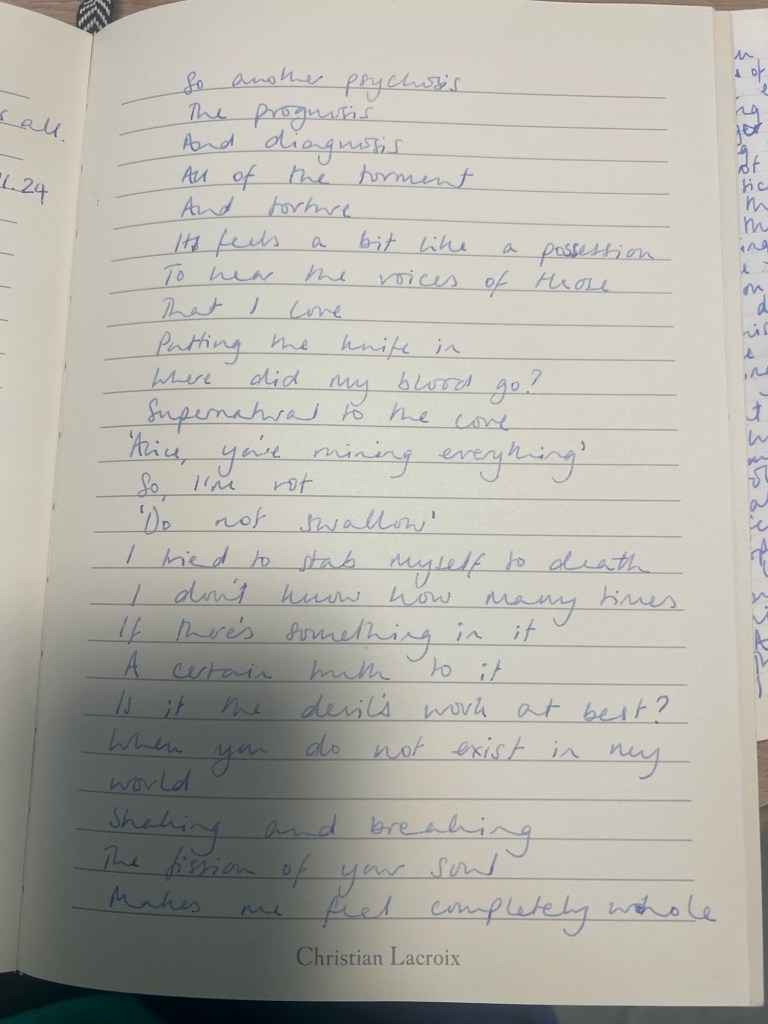 s all.
24
So another psychosis
The prognosis
And diagnosis
All of the torment
And torture
It feels a bit like a possession
To hear the voices of those
That I love
Putting the knife in
Where did my blood go?
Supernatural to the core
'Alice, you're mining everything'
So, I'm not
'Do not swallow'
I tried to stab myself to death
I don't know how many times
If there's something in it
A certain truth to it
Is it the devil's work at best?
When you do not exist in my
world
Shaking and breaking
The fission of your soul
Makes me feel completely whole
Christian Lacroix